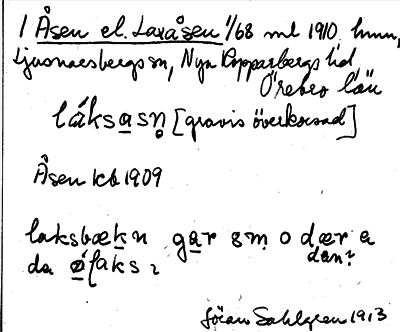 1 Åsen el. Laxåsen 1/68 ml 1910. hmn,
Ljusnarsbergs sn, Nya Kopparbergs hd,
Örebro län
láksasn̥ [gravis överkorsad]
Åsen kb 1909
laksbækn gar sm o dær a
dän?
da øfaks ɂ
Göran Sahlgren 1913